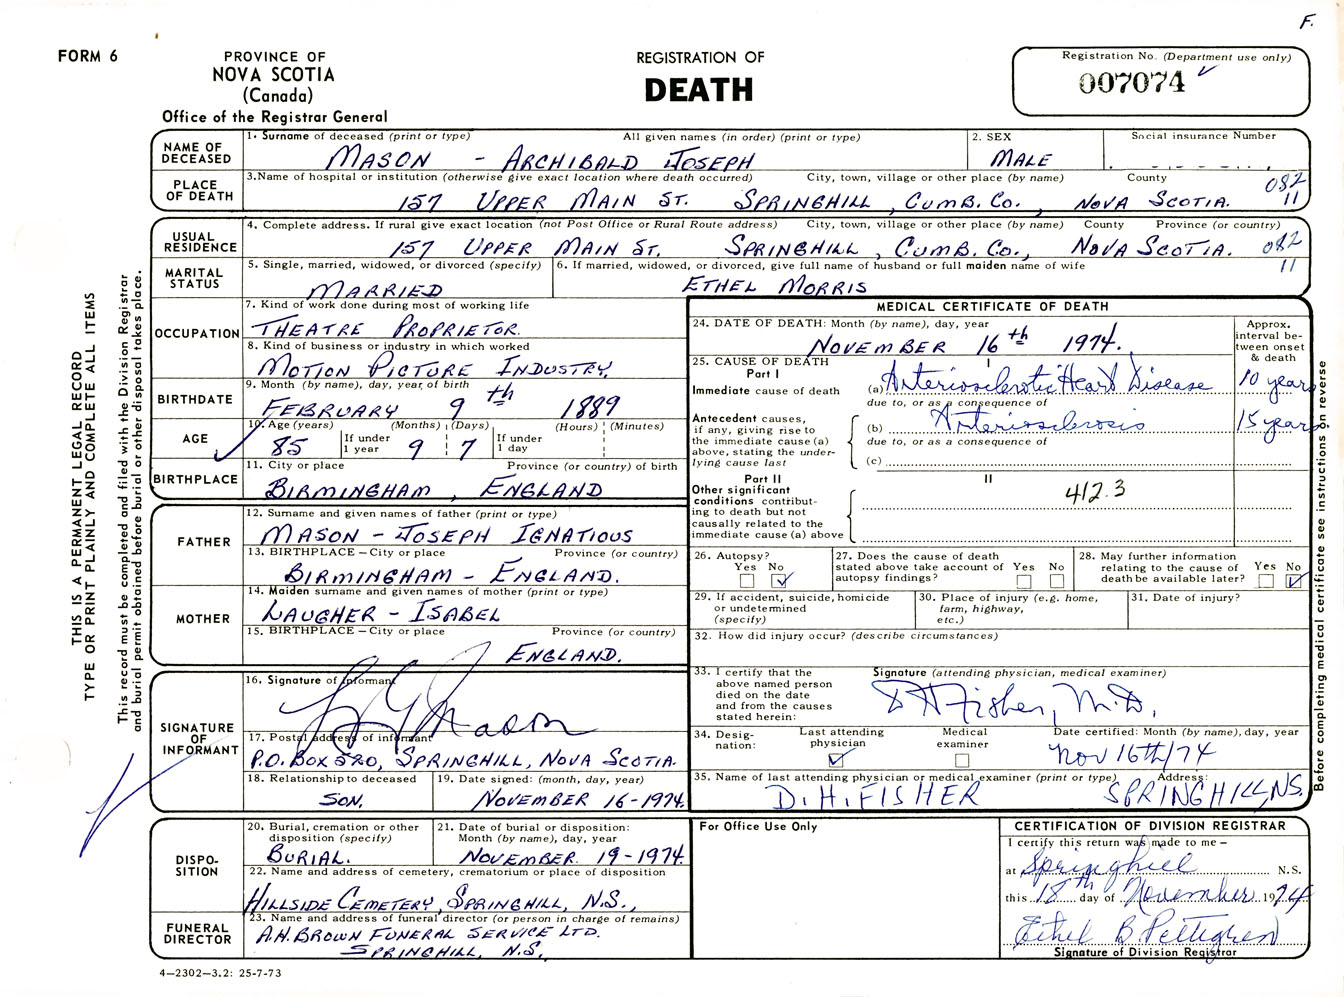 F.
FORM 6
PROVINCE OF
NOVA SCOTIA
(Canada)
Office of the Registrar General
REGISTRATION OF
DEATH
Registration No. (Department use only)
007074
NAME OF DECEASED
1. Surname of deceased (print or type) All given names (in order) (print or type)
MASON - ARCHIBALD JOSEPH
2. SEX
MALE
Social insurance Number
PLACE OF DEATH
3. Name of hospital or institution (otherwise give exact location where death occurred) City, town, village or other place (by name) County
157 UPPER MAIN ST. SPRINGHILL, CUMB. CO., NOVA SCOTIA.
082
11
USUAL RESIDENCE
4. Complete address. If rural give exact location (not Post Office or Rural Route address) City, town, village or other place (by name) County Province (or country)
157 UPPER MAIN ST. SPRINGHILL, CUMB. CO., NOVA SCOTIA.
082
11
MARITAL STATUS
5. Single, married, widowed, or divorced (specify)
MARRIED
6. If married, widowed, or divorced, give full name of husband or full maiden name of wife
ETHEL MORRIS
OCCUPATION
7. Kind of work done during most of working life
THEATRE PROPRIETOR.
8. Kind of business or industry in which worked
MOTION PICTURE INDUSTRY.
BIRTHDATE
9. Month (by name), day, year of birth
FEBRUARY 9th 1889
AGE
10. Age (years) (Months) (Days) (Hours) (Minutes)
85 If under 1 year 9 7 If under 1 day
BIRTHPLACE
11. City or place Province (or country) of birth
BIRMINGHAM, ENGLAND
FATHER
12. Surname and given names of father (print or type)
MASON - JOSEPH IGNATIOUS
13. BIRTHPLACE - City or place Province (or country)
BIRMINGHAM - ENGLAND.
MOTHER
14. Maiden surname and given names of mother (print or type)
LAUGHER - ISABEL
15. BIRTHPLACE - City or place Province (or country)
ENGLAND.
SIGNATURE OF INFORMANT
16. Signature of informant
Mason
17. Postal address of informant
P.O. BOX 520, SPRINGHILL, NOVA SCOTIA.
18. Relationship to deceased
SON.
19. Date signed: (month, day, year)
NOVEMBER 16-1974.
DISPOSITION
20. Burial, cremation or other disposition (specify)
BURIAL.
21. Date of burial or disposition: Month (by name), day, year
NOVEMBER 19-1974.
22. Name and address of cemetery, crematorium or place of disposition
HILLSIDE CEMETERY, SPRINGHILL, N.S.,
FUNERAL DIRECTOR
23. Name and address of funeral director (or person in charge of remains)
A.H. BROWN FUNERAL SERVICE LTD.
SPRINGHILL, N.S.
MEDICAL CERTIFICATE OF DEATH
24. DATE OF DEATH: Month (by name), day, year
NOVEMBER 16th 1974.
Approx. interval between onset & death
25. CAUSE OF DEATH
Part I
I
Immediate cause of death
(a) Arteriosclerotic Heart Disease 10 years
due to, or as a consequence of
Antecedent causes, if any, giving rise to the immediate cause (a) above, stating the underlying cause last
(b) Arteriosclerosis 15 years
due to, or as a consequence of
(c)
Part II
II
Other significant conditions contributing to death but not causally related to the immediate cause (a) above
412.3
26. Autopsy?
Yes No
27. Does the cause of death stated above take account of autopsy findings?
Yes No
28. May further information relating to the cause of death be available later?
Yes No
29. If accident, suicide, homicide or undetermined (specify)
30. Place of injury (e.g. home, farm, highway, etc.)
31. Date of injury?
32. How did injury occur? (describe circumstances)
33. I certify that the above named person died on the date and from the causes stated herein:
Signature (attending physician, medical examiner)
D H Fisher, M.D.
34. Designation:
Last attending physician
Medical examiner
Date certified: Month (by name), day, year
Nov 16th/74
35. Name of last attending physician or medical examiner (print or type) Address:
D.H. FISHER SPRINGHILL, NS.
For Office Use Only
CERTIFICATION OF DIVISION REGISTRAR
I certify this return was made to me -
at Springhill N.S.
this 18th day of November 1974
Ethel B Pettigrew
Signature of Division Registrar
4-2302-3.2: 25-7-73
THIS IS A PERMANENT LEGAL RECORD
TYPE OR PRINT PLAINLY AND COMPLETE ALL ITEMS
This record must be completed and filed with the Division Registrar
and burial permit obtained before burial or other disposal takes place.
Before completing medical certificate see instructions on reverse